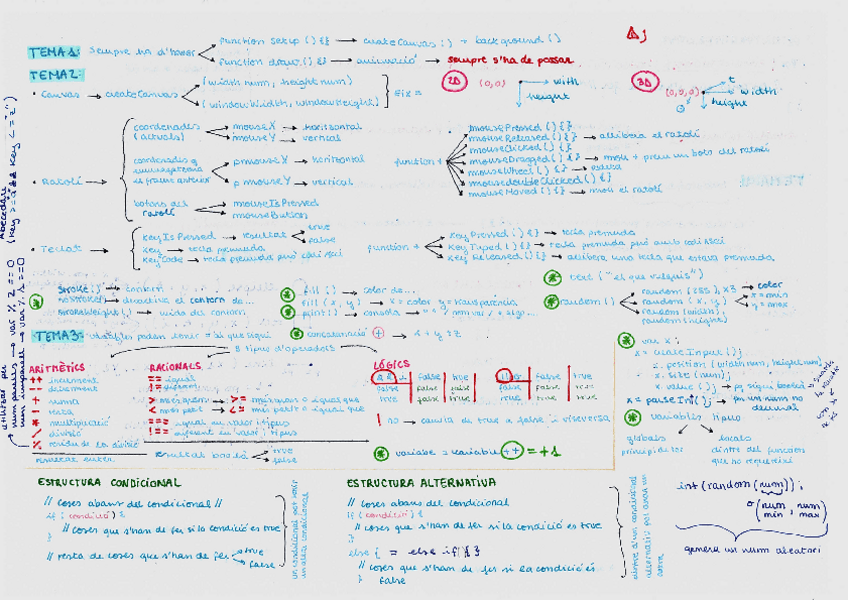 TEMA1: sempre ha d'haver
function setup () {} → createCanvas() + background ()
function draw () {} → animació → sempre s'ha de passar
TEMA2:
• Canvas → createCanvas
(width num, height num)
(windowWidth, windowHeight)
eix =
2D (0,0) width
height
3D (0,0,0) width
height
• Ratolí →
coordenades (actuals) → mouseX → horitzontal
mouseY → vertical
el frame anterior
pmouseX → horitzontal
pmouseY → vertical
botons del ratolí
mouseIsPressed
mouseButton
function +
mousePressed () {}
mouseReleased () {} → allibera el ratolí
mouseClicked () {}
mouseDragged () {} → mou + prem un botó del ratolí
mouseWheel () {}
mousedoubleClicked () {}
mouseMoved () {} → mou el ratolí
• Teclat →
keyIsPressed → resultat
true
false
key → tecla premuda
keyCode → tecla premuda però codi Ascii
function +
keyPressed () {} → tecla premuda
keyTyped () {} → tecla premuda però amb codi Ascii
keyReleased () {} → allibera una tecla que estava premuda
stroke() → contorn
noStroke() → desactiva el contorn de...
strokeWeight() → mida del contorn
fill() → color de...
fill (x, y) → x = color y = transparència
print() → consola
text ("el que vulguis")
random ()
random (255), x3 → color
random (x, y)
x = min
y = max
random (width);
random (height)
TEMA3: variables poden tenir = si que signi
concatenació + → x + y + z
3 tipus d'operadors
ARITMÈTICS
++ increment
-- decrement
+ suma
- resta
* multiplicació
/ divisió
% residu de la divisió
resultat enter
RACIONALS
== igual
!= diferent
> més gran → >= més gran o igual que
< més petit → <= més petit o igual que
=== igual en valor i tipus
!== diferent en valor i tipus
resultat booleà
true
false
LÒGICS
&& false true
false false false
true false true
|| false true
false false true
true true true
! no → canvia de true a false i viceversa
variable = variable ++ = +1
var x;
x = createInput ();
x. position (width num, height num)
x. size (num)
x. value ();
x = parseInt();
decimal
variables tipus
globals
locals
dintre del funcion
que no requereixi
ESTRUCTURA CONDICIONAL
// coses abans del condicional //
if (condició) {
// coses que s'han de fer si la condició és true
}
// resta de coses que s'han de fer
true
false
un condicional pot tenir
un altre condicional
ESTRUCTURA ALTERNATIVA
// coses abans del condicional
if (condició) {
// coses que s'han de fer si la condició és true
}
else { = else if { }
// coses que s'han de fer si la condició és
} false
dintre d'un condicional
alternatiu pot haver un
altre
int (random (num));
o (num min, num max)
genera un num aleatori
Abecedari
(key >= "a" && key <= "z")
num parells → var % 2 == 0